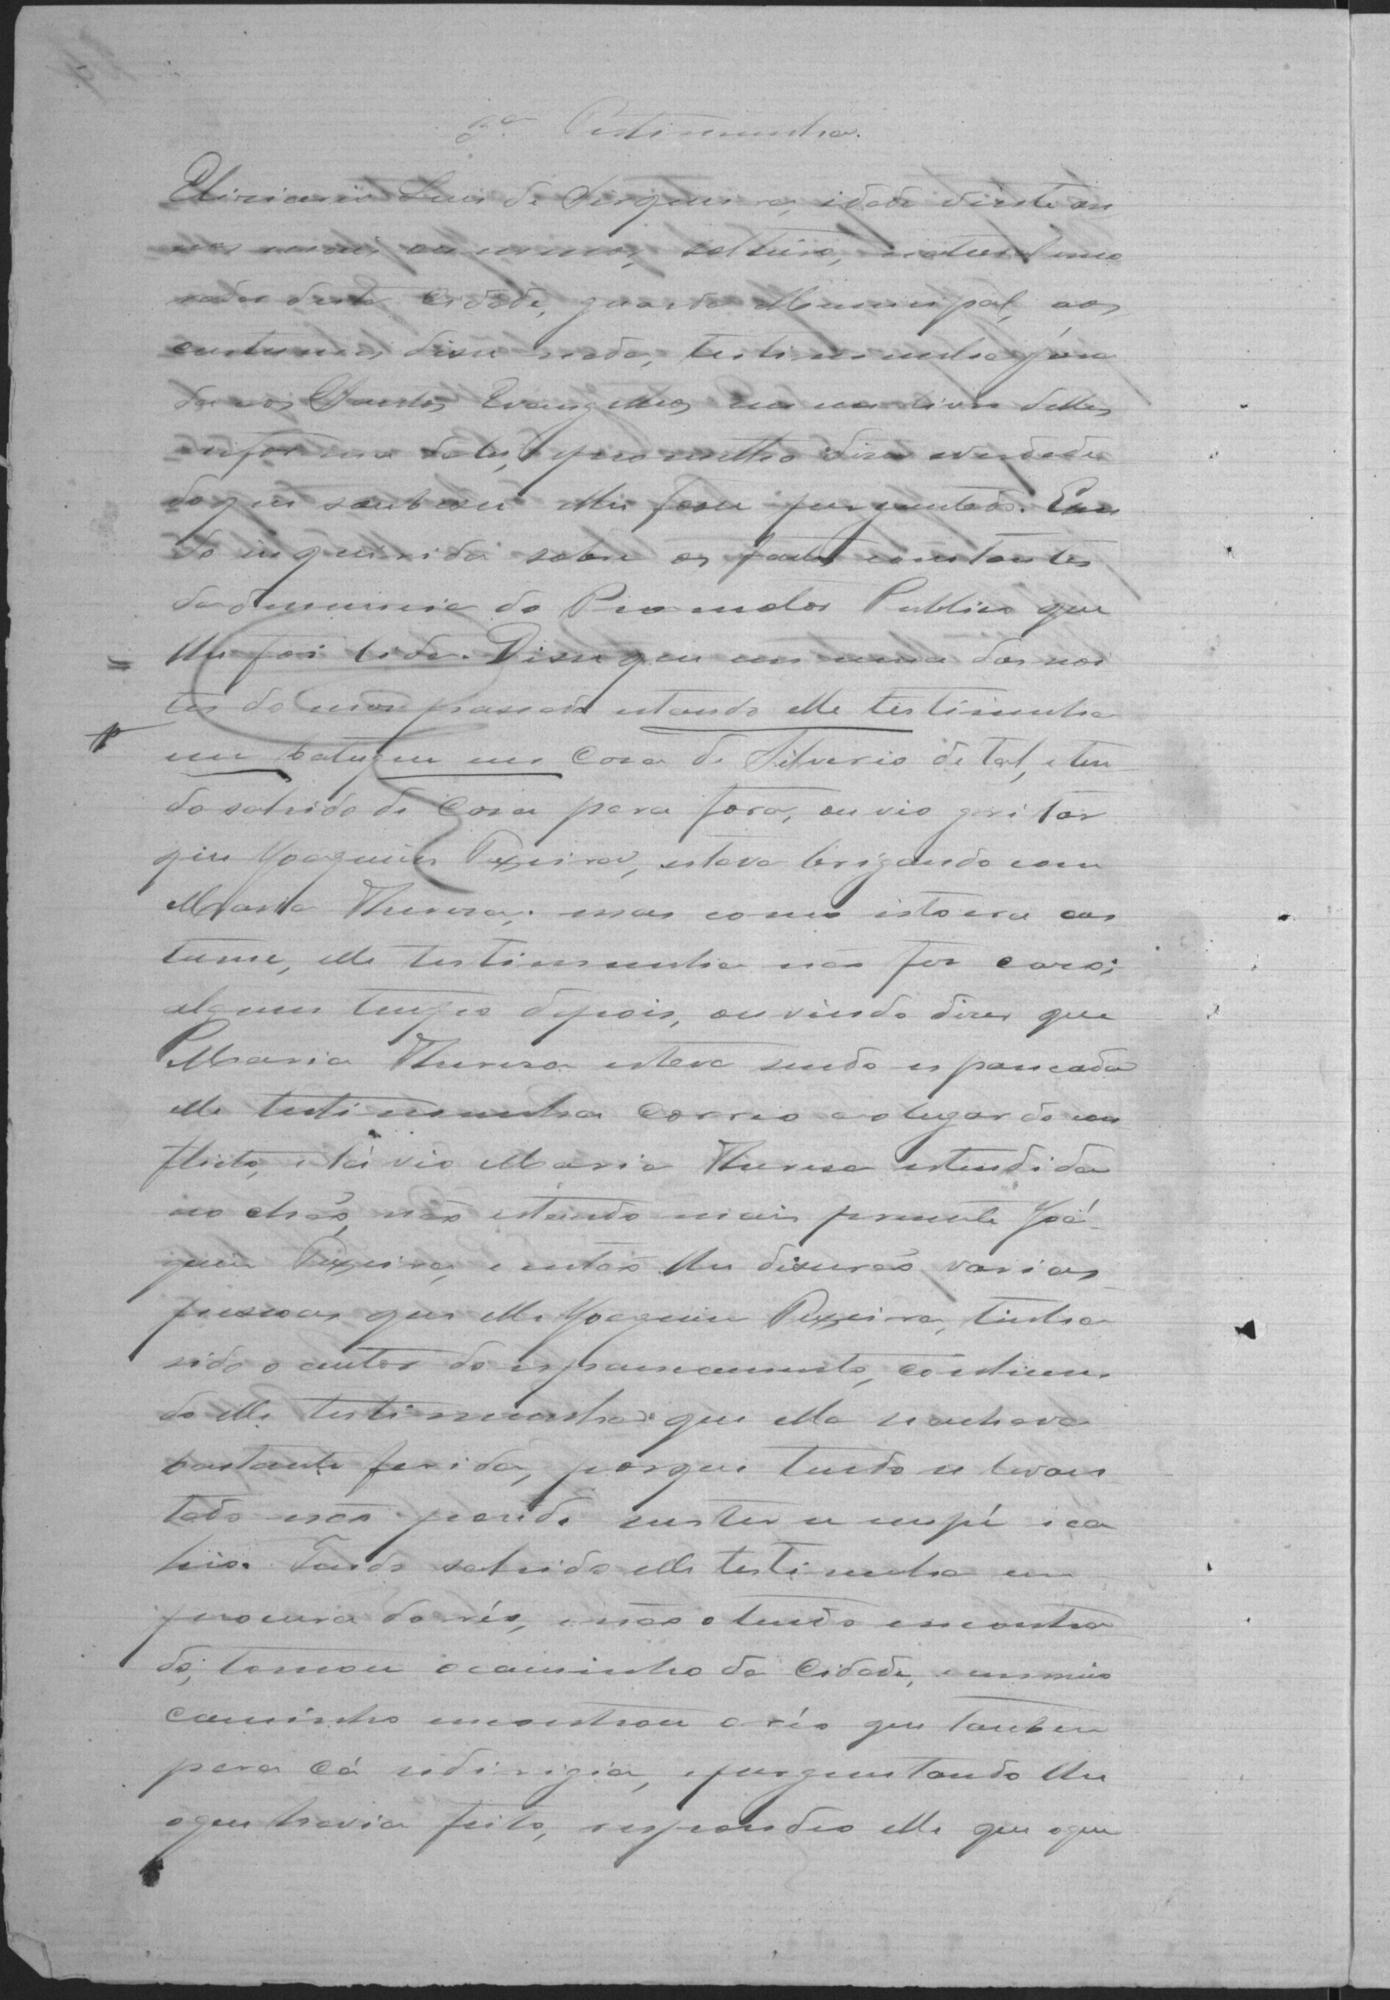 3ª Testimunha.
Luis de Sirqueira, idade vinte an
nos mais ou menos, solteiro, natural e mo
rador desta Cidade, guarda Municipal, aos
custumes disse nada, testimunha jura
da aos Santos Evangelhos em um livro delles
em que pos sua mão direita, prometteo diser a verdade
do que soubesse e lhe fosse perguntado. E sen
do inquirida sobre os factos constantes
da denuncia do Promotor Publico que
lhe foi lida. Disse que em uma das noi
tes do mes passado estando elle testimunha
em batuque em casa de Silverio de tal, e ten
do sahido de casa para fora, ouvio gritar
que Joaquim Teixeira, estava brigando com
Maria Theresa; mas como isto era cus
tume, elle testimunha não fez caso;
algum tempo depois, ouvindo diser que
Maria Theresa estava sendo espancada
elle testimunha correo ao lugar do con
flicto, e lá vio Maria Theresa estendida
no chão, não estando mais presente Joa
quim Teixeira, e então lhe disserão varias
pessoas que elle Joaquim Teixeira, tinha
sido o autor do espancamento,
do elle testimunha que ella se achava
bastante ferida, porque tendo se levan
tado não poude suster se em pé e ca
hio. Tendo sahido elle testimunha em
procura do réo, e não o tendo encontra
do, tomou o caminho da Cidade, e em meio
caminho encontrou o réo que tambem
para cá se dirigia, e perguntando lhe
o que havia feito, respondeo elle que o que